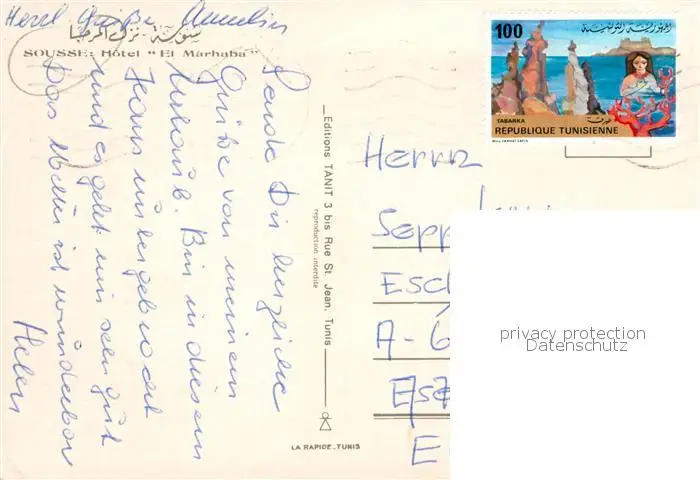 Herzl. Grüße Annelies
سوسة - نزل المرحبا
SOUSSE: Hôtel "El Marhaba"
Sende Dir herzliche
Grüße von meinem
Urlaub. Bin in diesem
Haus untergebracht
und es geht mir sehr gut
Das Wetter ist wunderbar
Helen
Editions TANIT 3 bis Rue St. Jean. Tunis
reproduction interdite
LA RAPIDE-TUNIS
100
الجمهورية التونسية
TABARKA
طبرقة
REPUBLIQUE TUNISIENNE
Herrn
Sepp
Esch
A-6
E
privacy protection
Datenschutz